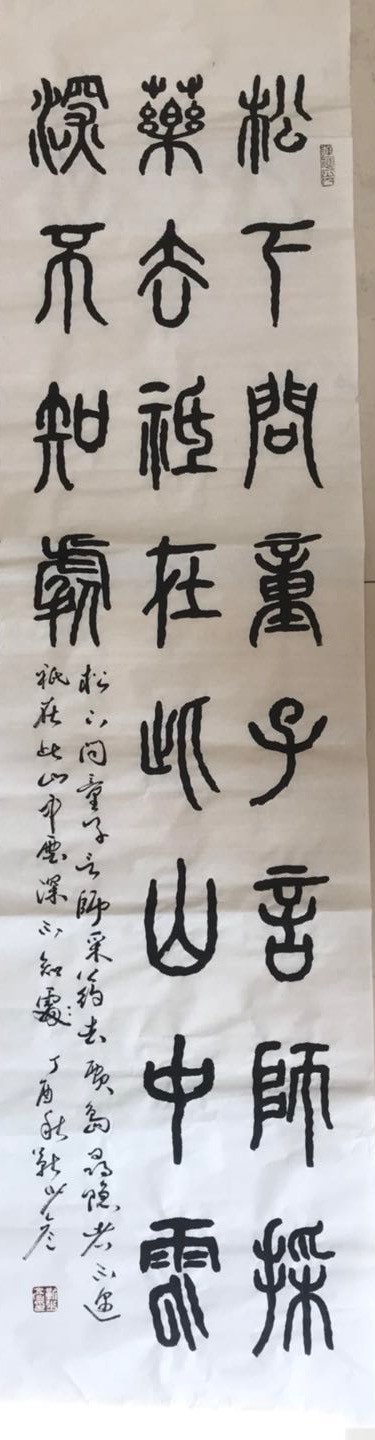 松下問童子言師採
藥去祇在此山中雲
深不知處
松下问童子言師采葯去賈島尋隐者不遇
祇在此山中雲深不知處 丁酉秋